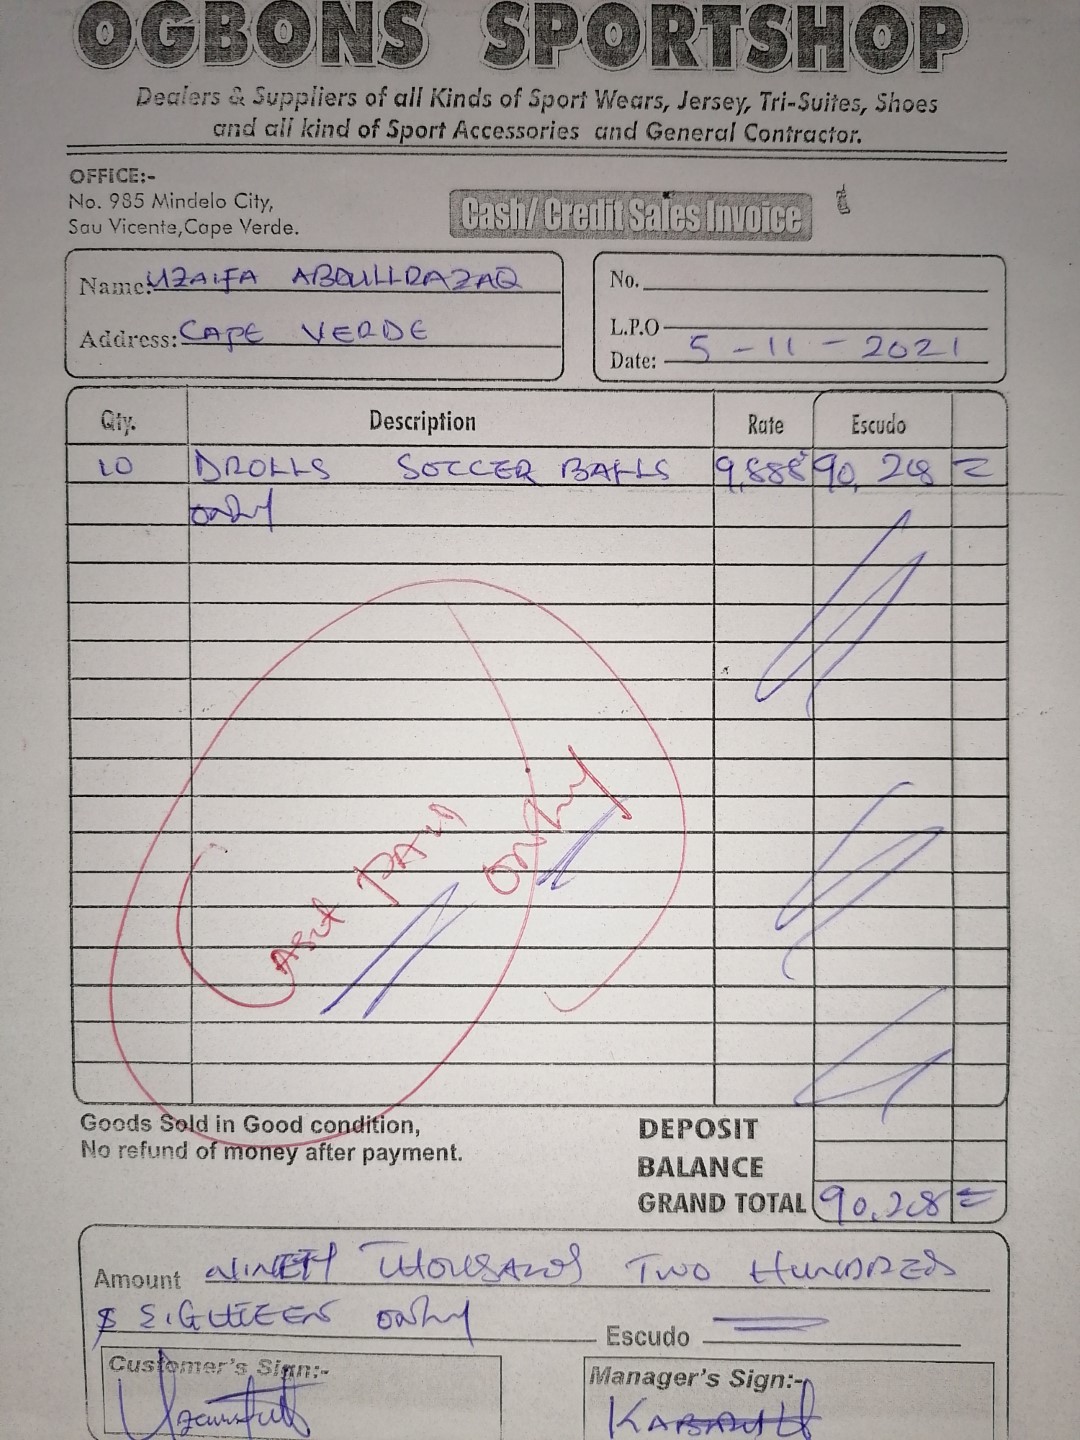 OGBONS SPORTSHOP
Dealers & Suppliers of all Kinds of Sport Wears, Jersey, Tri-Suites, Shoes
and all kind of Sport Accessories and General Contractor.
OFFICE:-
No. 985 Mindelo City,
Sau Vicente,Cape Verde.
Cash/ Credit Sales Invoice
Name: UZAIFA ABDULLRAZAQ
Address: CAPE VERDE
No.
L.P.O
Date: 5-11-2021
Qty. Description Rate Escudo
10 DROLLS SOCCER BALLS 90,218 =
only
CASH PAID ONLY
Goods Sold in Good condition,
No refund of money after payment.
DEPOSIT
BALANCE
GRAND TOTAL 90,218 =
Amount NINETY THOUSAND TWO HUNDRED
& EIGHTEEN only Escudo
Customer's Sign:-
Manager's Sign:-